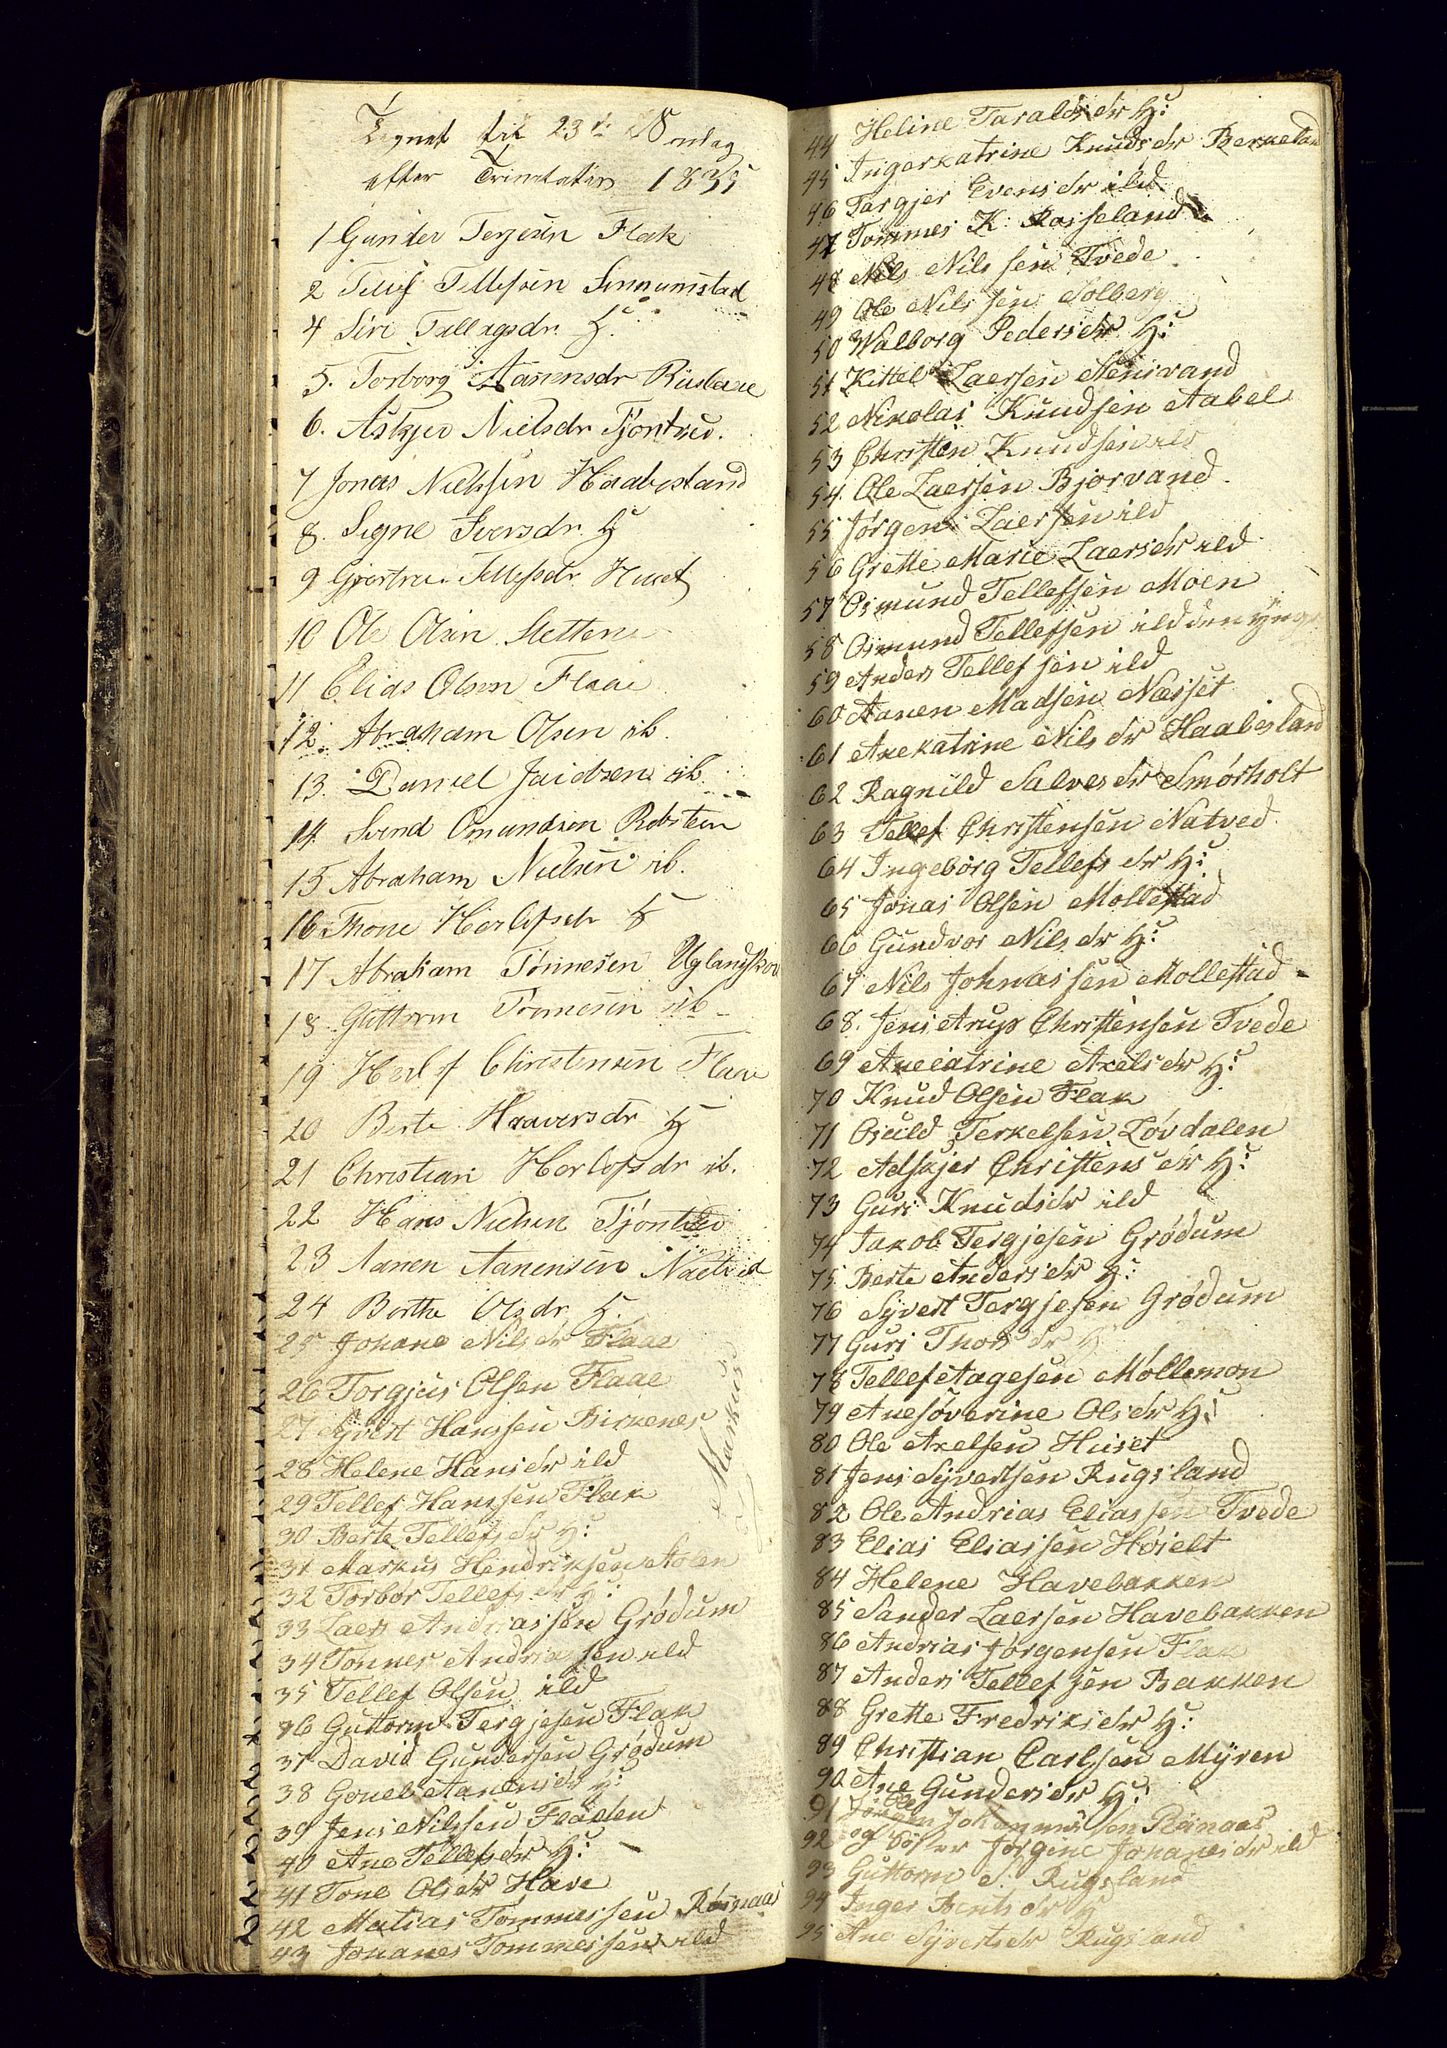 Tegnet til 23de Søndag
efter Trinitatis 1835
1 Gunder Terjesen Flak
2 Tellef Tellefsen Sennumstad
4 Siri Tallagsdr H:
5. Torborg Aanensdr
6. Askjer Nielsdr Tjøntved.
7 Jonas Nielsen Haabesland
8. Signe Iversdr. H
9 Gjertru Tellefsdr. Huset
10 Ole Olsen Mettene
11 Elias Olsen Flaae
12. Abraham Olsen ib.
13. Daniel ib.
14. Svend Omundsen Robsteen
15 Abraham Nielsen ib.
16. Thone Herlofsdr H
17 Abraham Tönnesen Uglandskov
18. Guttorm Tönnesen ib
19 Herlof Christensen Flaae
20 Berte Haaversdr H
21 Christiani Herlofsdr ib.
22 Hans Nielsen Tjøntved
23 Aanen Aanensen Natved
24 Berthe Olsdr. H.
25 Johane Nilsdr Flaae
26 Torgjus Olsen Flaae
27 Syvert Hanssen Birkenes
28 Helene Hansdr ild
29 Tellef Hanssen Flak
30 Berte Tellefsdr H:
31 Markus Hendriksen Stolen
32 Torbor Tellefsdr H:
33 Laers Andriassen Grødum
34 Tønnes Andriassen ild
35 Tellef Olsen ild
36 Guttorm Tergjesen Flak
37 David Gundersen Grødum
38 Gonel Aanensdr H:
39 Jens Nilssen Flaaden
40 Ane Tellefsdr H:
41 Tone Olsdr Have
42 Matias Tommessen Røinaas
43 Johanes Tommessen ild
Markus
44 Heline Taraldsdr H:
45 Ingerkatrine Knudsdr Berkeland
46 Targjer Evensdr ild
47 Tommes K. Rosseland
48 Nils Nilssen Tvede
49 Ole Nilssen Solberg
50 Walborg Pedersdr H:
51 Kittel Laersen Stensvand
52 Nikolai Knudsen Aabel
53 Christen Knudsen ild
54. Ole Laersen Bjorvand.
55 Jørgen Laersen ild
56 Grette Marie Laersdr ild
57 Osmund Tellefsen Moen
58 Osmund Tellefsen ild den yngr
59 Anders Tellefsen ild
60 Aanen Madsen Næsset
61 Anekatrine Nilsdr Haabesland
62 Ragnild Salvesdr Smørholt
63 Tellef Christensen Natved
64 Ingeborg Tellefsdr H:
65 Jonas Olsen Mollestad
66 Gundvor Nilsdr H:
67 Nils Johnassen Mollestad
68. Jens Arup Christensen Tvede
69 Anecatrine Axelsdr H:
70 Knud Olsen Flak
71 Osuld Terkelsen Løvdalen
72 Adskjer Christensdr H:
73 Guri Knudsdr ild
74 Jakob Tergjesen Grødum
75 Berte Andersdr H:
76 Syvert Tergjesen Grødum
77 Guri Thorsdr H
78 Tellef Aagesen Møllemon
79 Anesøverine Olsdr H:
80 Ole Axelsen Huset
81 Jens Syvertsen Rugsland
82 Ole Andrias Eliassen Tvede
83 Elias Eliassen Høielt
84 Helene Havebakken
85 Sander Laersen Havebakken
86 Andrias Jørgensen Flak
87 Anders Tellefsen Bakken
88 Grette Fredriksdr H:
89 Christian Carlsen Myren
90 Ane Gundersdr H:
91 Johannessen Røinaas
92 og Jørgine Johanesdr ild
93 Guttorm S. Rugsland
94 Inger Bentsdr H
95 Ane Syvertsdr Rugsland